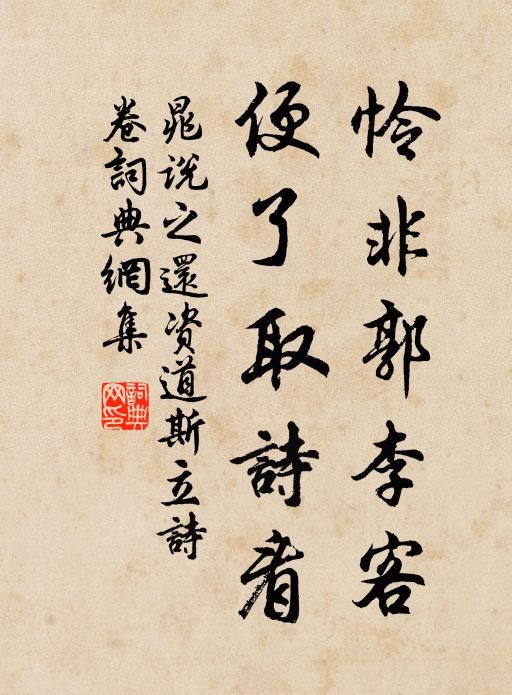 怜非郭李客
便了取詩看
晁說之還資道斯立詩
卷詞典網集
詞典
网印